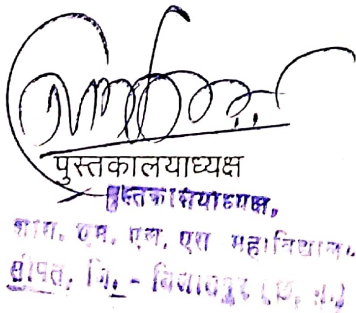 पुस्तकालयाध्यक्ष
पुस्तकालयाध्यक्ष,
शास. एम. एल. एस महाविद्यालय.
सीपत, जि. - बिलासपुर (छ. ग.)